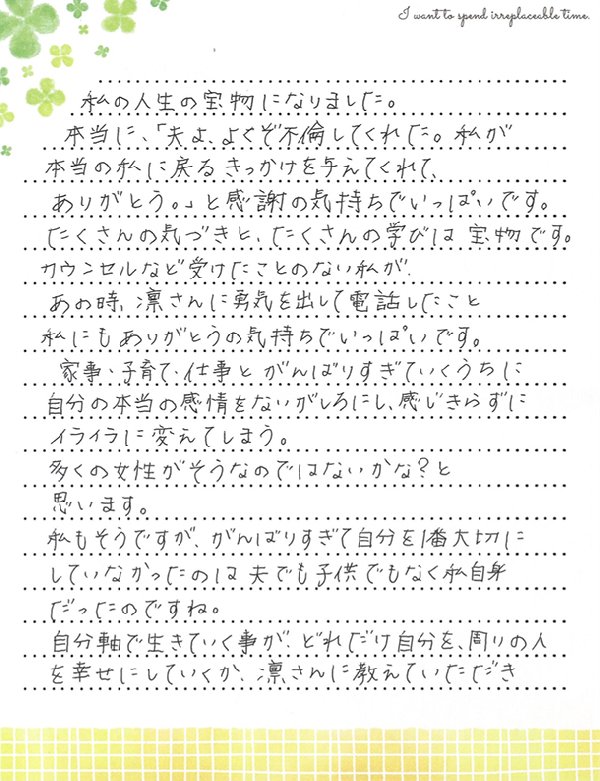 I want to spend irreplaceable time.
私の人生の宝物になりました。
本当に、「夫よ、よくぞ不倫してくれた。私が
本当の私に戻るきっかけを与えてくれて、
ありがとう。」と感謝の気持ちでいっぱいです。
たくさんの気づきと、たくさんの学びは宝物です。
カウンセルなど受けたことのない私が、
あの時、凛さんに勇気を出して電話したこと
私にもありがとうの気持ちでいっぱいです。
家事・子育て・仕事とがんばりすぎていくうちに
自分の本当の感情をないがしろにし、感じきらずに
イライラに変えてしまう。
多くの女性がそうなのではないかな?と
思います。
私もそうですが、がんばりすぎて自分を1番大切に
していなかったのは夫でも子供でもなく私自身
だったのですね。
自分軸で生きていく事が、どれだけ自分を、周りの人
を幸せにしていくか、凛さんに教えていただき